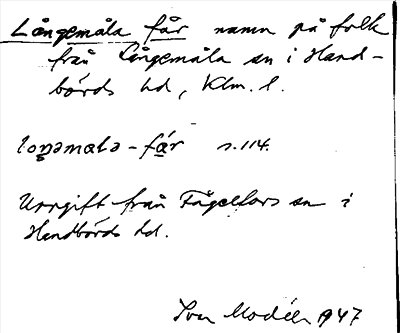 Långemåla får namn på folk
från Långemåla sn i Hand-
börds hd, Klm. l.
loŋəmalə-fár s.114.
Uppgift från Fågelfors sn i
Handbörds hd.
Ivar Modéer 1947